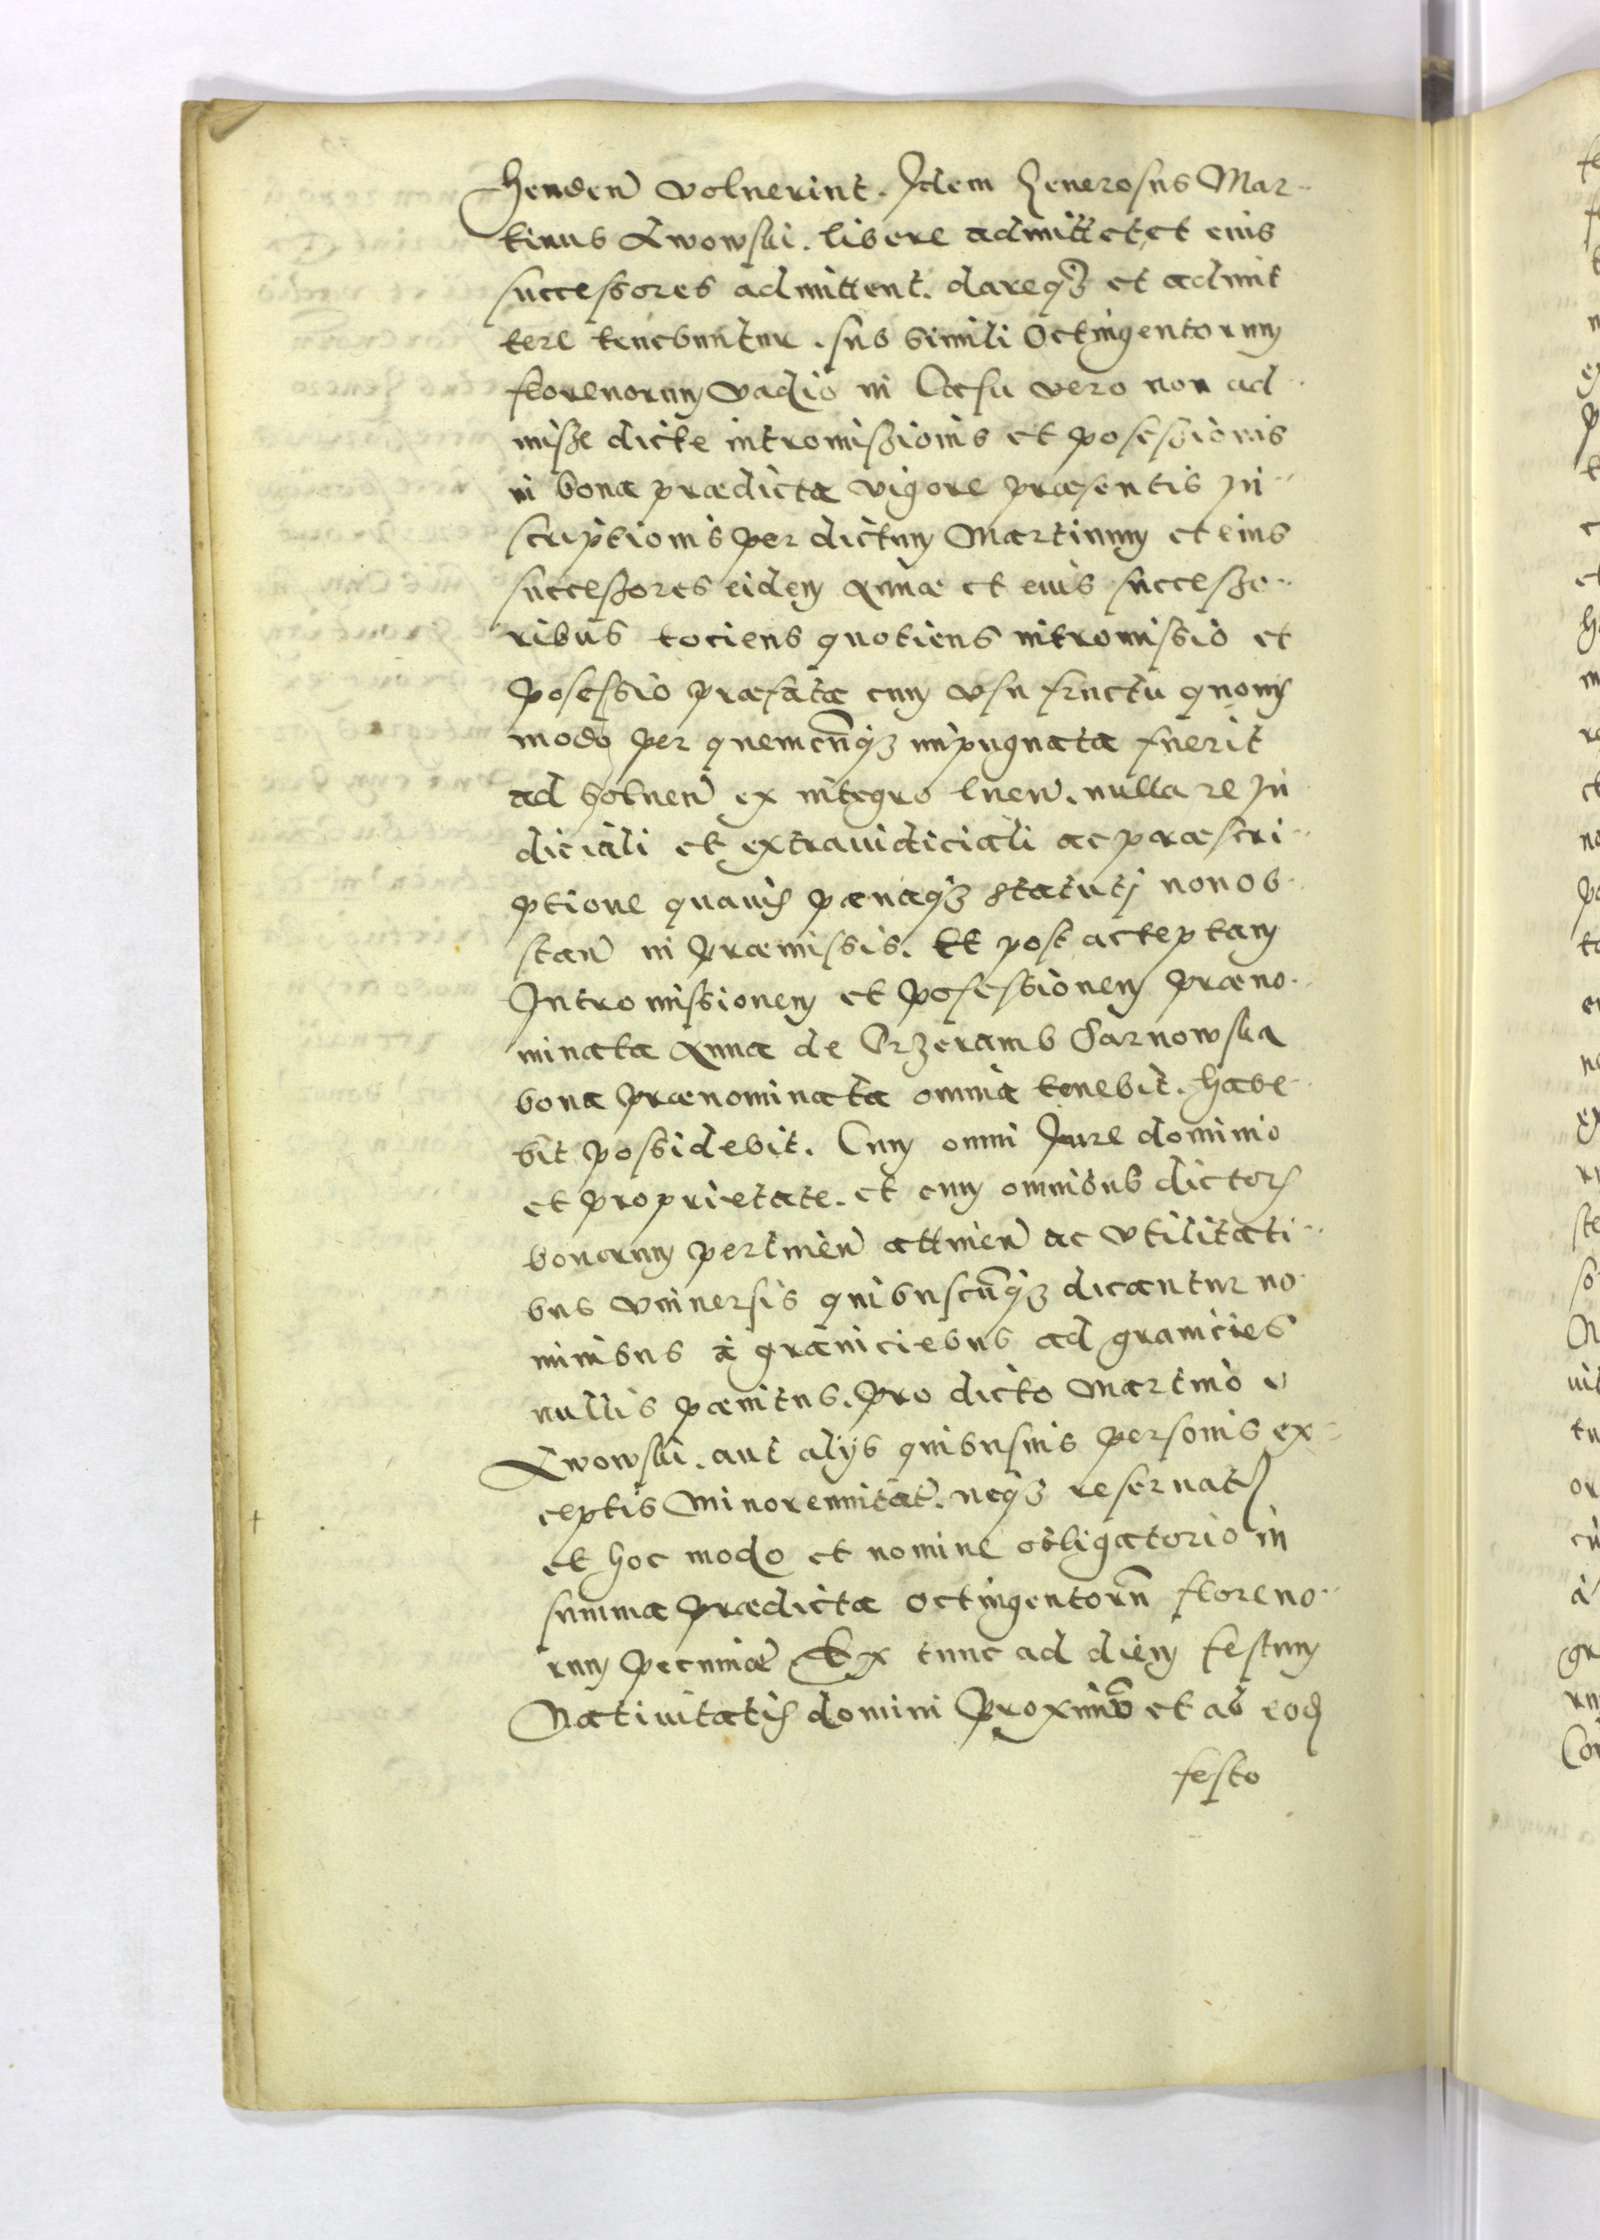 henden̄ voluerint. Idem Generosus Mar-
tinus Lwowski. libere admittet et eius
successores admittent. dareq3 et admit
tere tenebuntur. sub simili Octingentorum
florenorum vadio in Casu vero non ad
missae dicte intromissionis et posessionis
in bona praedicta vigore praesentis In-
scriptionis per dictum Martinum et eius
successores eidem Annae et eius successo-
ribus tociens quotiens intromissio et
posessio praefata cum usu fructu quouis
modo per quemcūq3 impugnata fuerit
ad soluen̄ ex integro luen̄. nulla re Iu
diciali et extraiudiciali ac praescri-
ptione quauis paenaq3 statuti non ob
stan̄ in praemissis. Et post acceptam
Intromissionem et posessionem praeno-
minata Anna de Crzeramb Sarnowska
bona praenominata omnia tenebit. habe-
bit possidebit. Cum omni Jure dominio
et proprietate. et cum omnibus dictor
bonorum pertinen̄ attinen̄ ac vtilitati-
bus vniuersis quibuscūq3 dicantur no
minibus a graniciebus ad granicies
nullis paenitus. pro dicto Martino
Lwowski. aut alijs quibusuis personis ex-
ceptis Minorennitat. neq3 reseruat
et hoc modo et nomine obligatorio in
summa praedicta octingentorū floreno-
rum pecuniae Ex tunc ad diem festum
Natiuitatis domini proximo et ab eod
festo